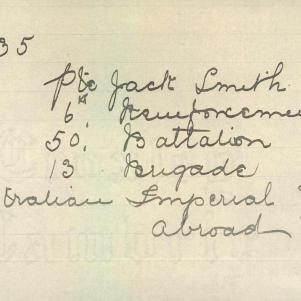 35
Pte Jack Smith
6th Reinforceme
50. Battalion
13. Brigade
tralian Imperial
Abroad